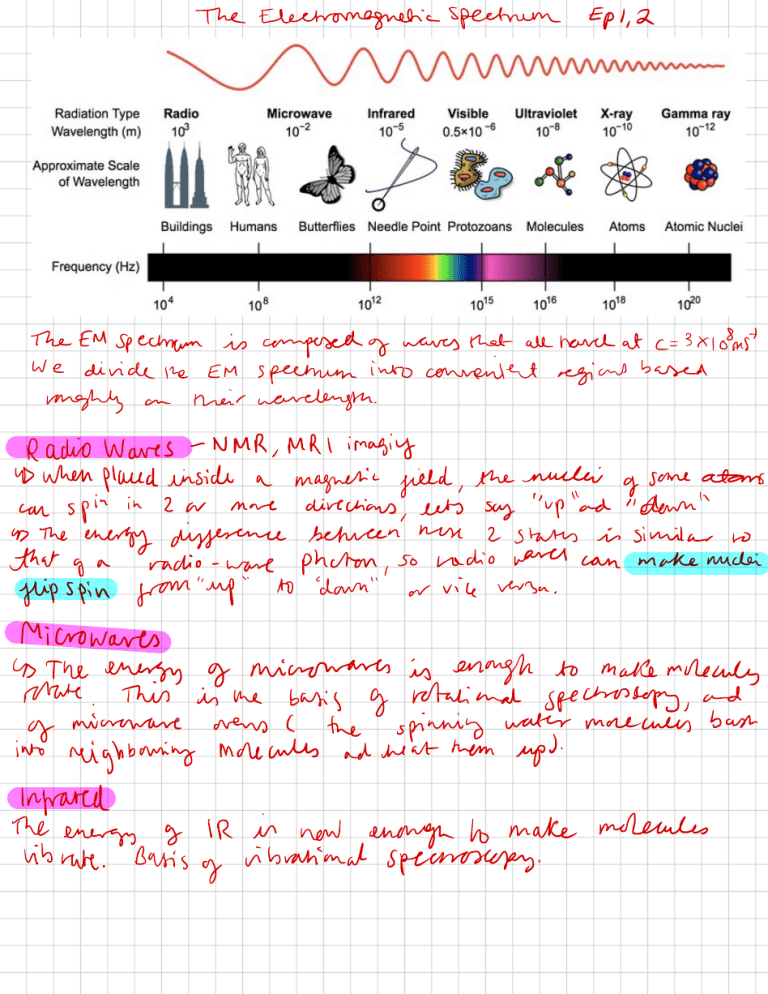 The Electromagnetic Spectrum Ep 1, 2
Radiation Type Radio Microwave Infrared Visible Ultraviolet X-ray Gamma ray
Wavelength (m) 10³ 10⁻² 10⁻⁵ 0.5×10⁻⁶ 10⁻⁸ 10⁻¹⁰ 10⁻¹²
Approximate Scale
of Wavelength
Buildings Humans Butterflies Needle Point Protozoans Molecules Atoms Atomic Nuclei
Frequency (Hz)
10⁴ 10⁸ 10¹² 10¹⁵ 10¹⁶ 10¹⁸ 10²⁰
The EM spectrum is composed of waves that all travel at c = 3×10⁸ms⁻¹
We divide the EM spectrum into convenient regions based
roughly on their wavelength.
Radio Waves - NMR, MRI imaging
↳ when placed inside a magnetic field, the nuclei of some atoms
can spin in 2 or more directions, lets say "up" and "down"
↳ The energy difference between these 2 states is similar to
that of a radio-wave photon, so radio waves can make nuclei
flip spin from "up" to "down" or vice versa.
Microwaves
↳ The energy of microwaves is enough to make molecules
rotate. This is the basis of rotational spectroscopy, and
of microwave ovens ( the spinning water molecules bash
into neighbouring molecules and heat them up).
Infrared
The energy of IR is now enough to make molecules
vibrate. Basis of vibrational spectroscopy.